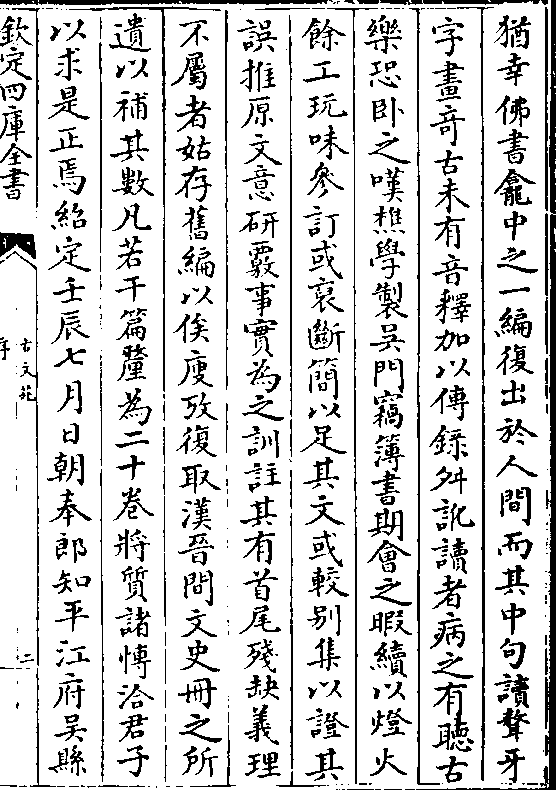 猶幸佛書龕中之一編復出於人間而其中句讀聱牙
字畫竒古未有音釋加以傳錄舛訛讀者病之有聽古
樂恐卧之嘆樵學製吳門竊簿書期會之暇續以燈火
餘工玩味參訂或裒斷簡以足其文或較别集以證其
誤推原文意研覈事實為之訓註其有首尾殘缺義理
不屬者姑存舊編以俟廋攷復取漢晉間文史冊之所
遺以補其數凡若干篇釐為二十卷將質諸博洽君子
以求是正焉紹定壬辰七月日朝奉郎知平江府吳縣
欽定四庫全書
古文苑
序
二